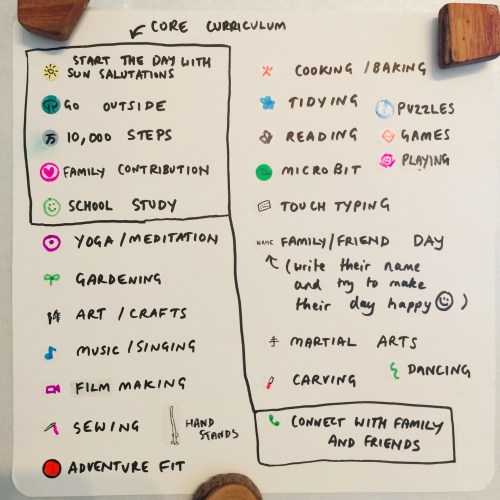 CORE CURRICULUM
START THE DAY WITH
SUN SALUTATIONS
GO OUTSIDE
10,000 STEPS
FAMILY CONTRIBUTION
SCHOOL STUDY
YOGA / MEDITATION
GARDENING
ART / CRAFTS
MUSIC / SINGING
FILM MAKING
SEWING
HAND
STANDS
ADVENTURE FIT
COOKING / BAKING
TIDYING
PUZZLES
READING
GAMES
MICROBIT
PLAYING
TOUCH TYPING
NAME FAMILY/FRIEND DAY
(write their name
and try to make
their day happy )
MARTIAL ARTS
CARVING
DANCING
CONNECT WITH FAMILY
AND FRIENDS